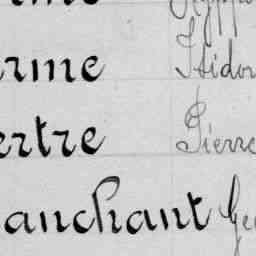 rme Isidor
ertre Pierre
anchant Ge